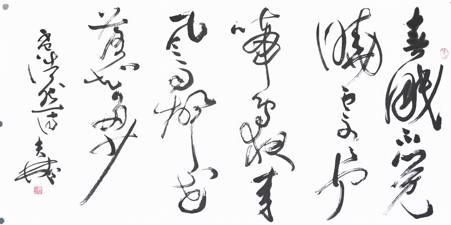 春眠不觉
晓处处闻
啼鸟夜来
风雨声花
落知多少
浩然诗